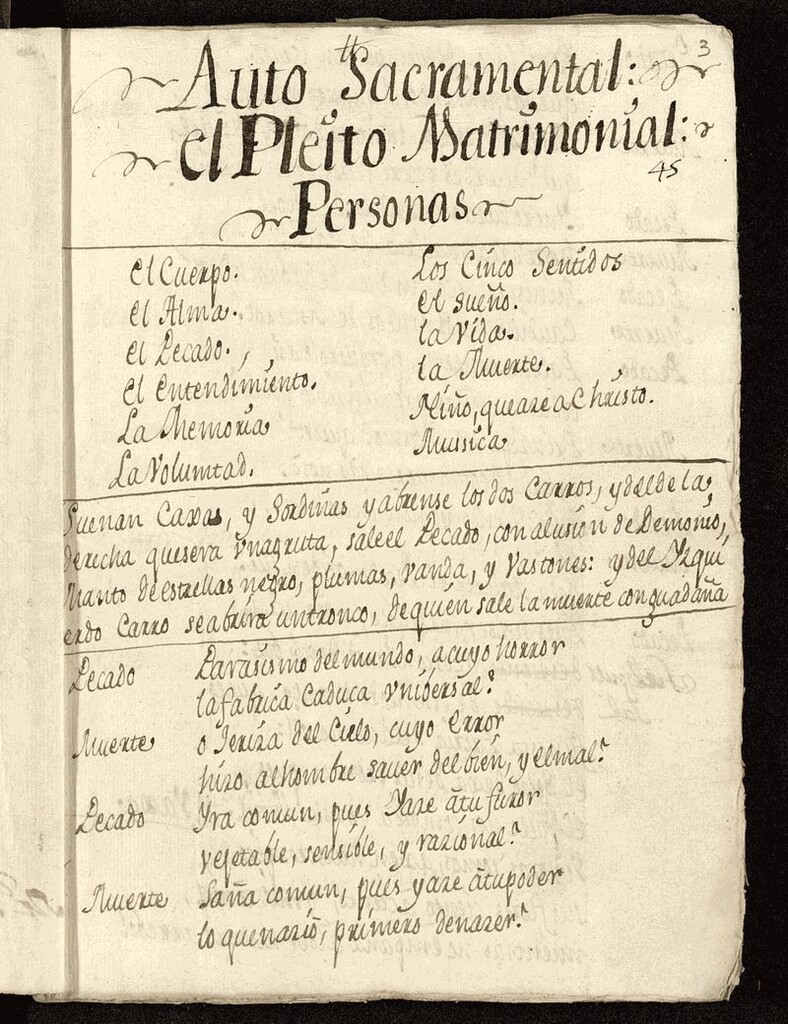 3
Auto Sacramental:
el Pleito Matrimonial:
45
Personas
el Cuerpo.
el Alma.
el Pecado.
el entendimiento.
La Memoria
La Volumtad.
Los Cinco Sentidos
el sueño.
la Vida.
la Muerte.
Niño, que aze a Christo.
Mussica
Suenan Caxas, y Sordinas y abrense los dos Carros, y del de la
derecha que sera vna gruta, sale el Pecado, con alusion de Demonio,
Manto de estrellas negro, plumas, vanda, y Vastones: y del Yzqui
erdo Carro se abrira un tronco, de quien sale la muerte con guadaña
Pecado Parasismo del mundo, a cuyo horror
la fabrica Caduca vniversal?
Muerte o Jeriza del Cielo, cuyo error
hizo al hombre saver del bien, y el mal?
Pecado Yra comun, pues Yaze à tu furor
vejetable, sensible, y razional?
Muerte Saña comun, pues yaze à tu poder
lo que nazio, primero de nazer?